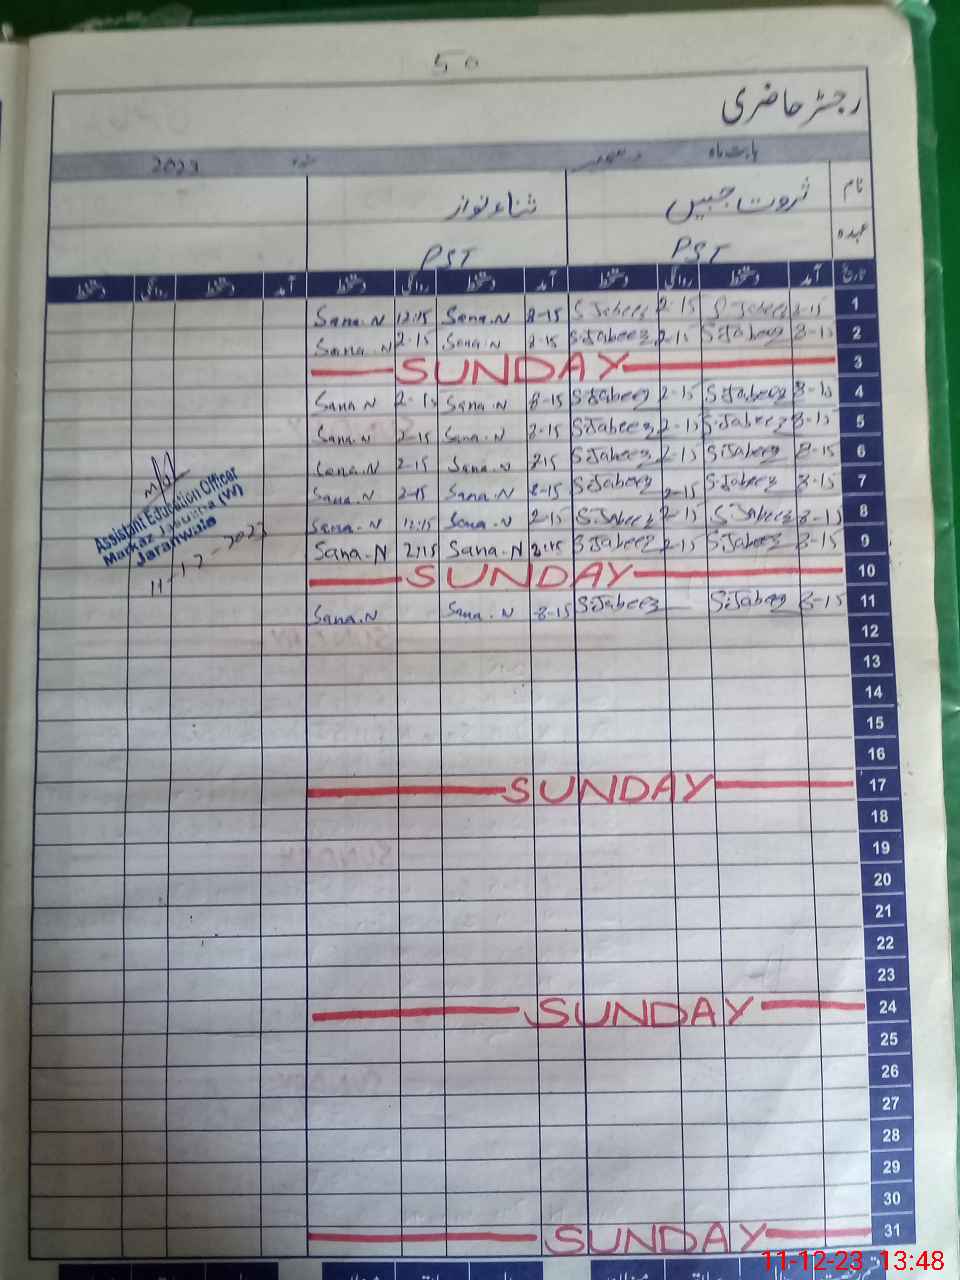 50
رجسٹر حاضری
بابت ماہ دسمبر 2023
نام ثروت جبیں ثناء نواز
عہدہ PST PST
تاریخ آمد دستخط روانگی دستخط آمد دستخط روانگی دستخط آمد دستخط روانگی دستخط
1 8-15 S.Jabeez 2-15 S.Jabeez 8-15 Sana.N 12:15 Sana.N
2 8-15 S.Jabeez 2-15 S.Jabeez 8-15 Sana.N 2-15 Sana.N
3 SUNDAY
4 8-15 S.Jabeez 2-15 S.Jabeez 8-15 Sana.N 2-15 Sana.N
5 8-15 S.Jabeez 2-15 S.Jabeez 8-15 Sana.N 2-15 Sana.N
6 8-15 S.Jabeez 2-15 S.Jabeez 8-15 Sana.N 2-15 Sana.N
7 8-15 S.Jabeez 2-15 S.Jabeez 8-15 Sana.N 2-15 Sana.N
8 8-15 S.Jabeez 2-15 S.Jabeez 2-15 Sana.N 12:15 Sana.N
9 8-15 S.Jabeez 2-15 S.Jabeez 8:15 Sana.N 2:15 Sana.N
10 SUNDAY
11 8-15 S.Jabeez S.Jabeez 8-15 Sana.N Sana.N
Assistant Education Officer
Markaz (W)
Jaranwala
11-12-2023
12
13
14
15
16
17 SUNDAY
18
19
20
21
22
23
24 SUNDAY
25
26
27
28
29
30
31 SUNDAY
11-12-23 13:48